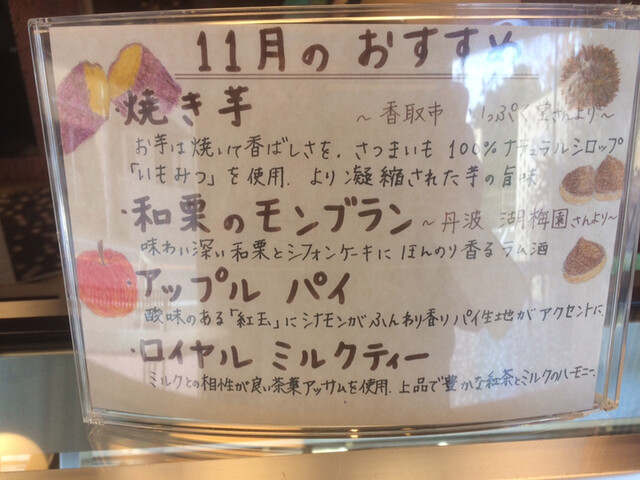 11月の おすすめ
・焼き芋 ～香取市 いっぷく堂さんより～
お芋は焼いて香ばしさを、さつまいも 100%ナチュラルシロップ
「いもみつ」を使用. より凝縮された芋の旨味
・和栗のモンブラン ～丹波 湖梅園さんより～
味わい深い和栗とシフォンケーキに ほんのり香るラム酒
アップル パイ
酸味のある「紅玉」にシナモンがふんわり香りパイ生地がアクセントに.
・ロイヤル ミルクティー
ミルクとの相性が良い茶葉アッサムを使用. 上品で豊かな紅茶とミルクのハーモニー.